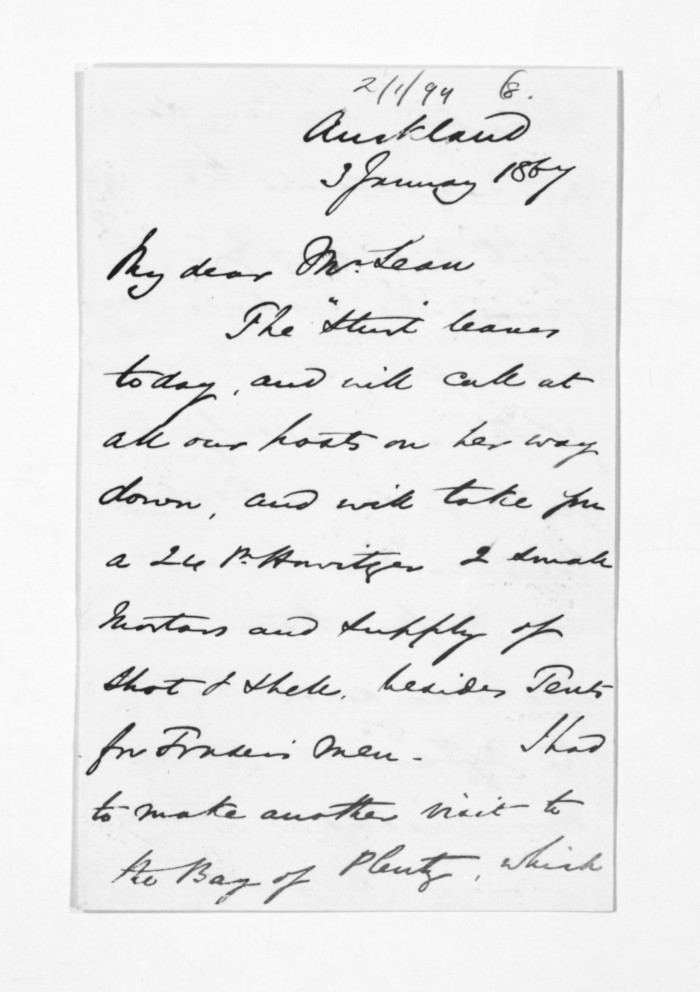 2/1/94 6.
Auckland
3 January 1867
My dear McLean
The "Sturt" leaves
today, and will call at
all our posts on her way
down, and will take you
a 24 Pr. Howitzer 2 small
Mortars and supply of
shot & shell, besides Tents
for Fraser's men. I had
to make another visit to
the Bay of Plenty, which